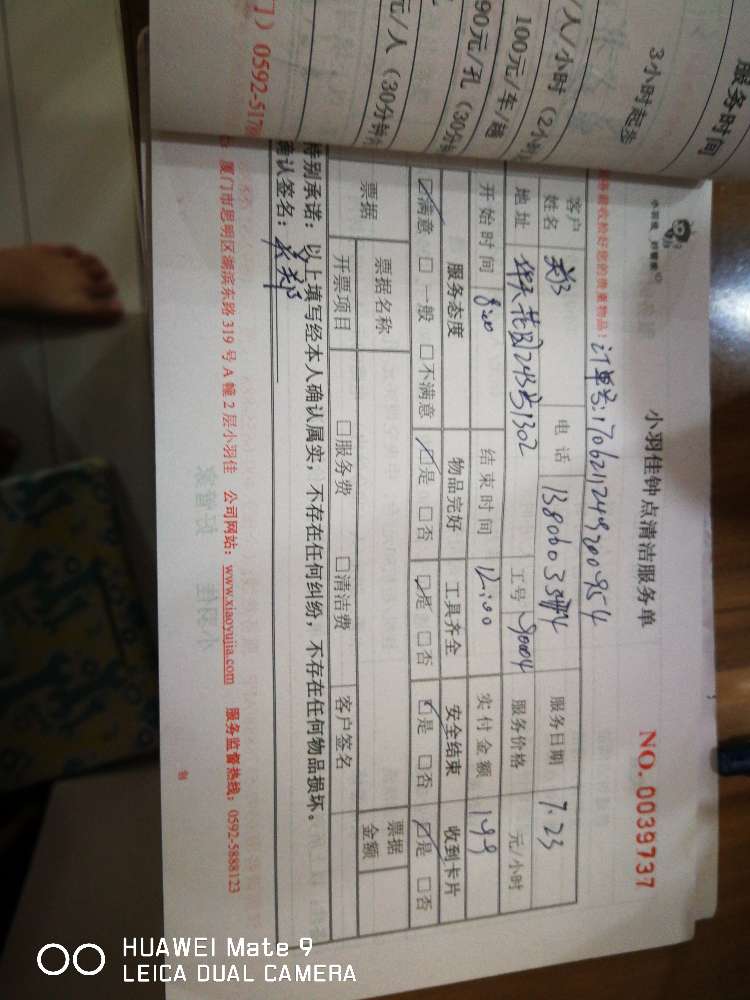 服务时间
3小时起步
/人/小时（2小时
100元/车/趟
90元/孔（30分钟
元/人（30分钟
门）0592-517
小羽佳钟点清洁服务单
NO. 0039737
订单号:170621124920095
客户姓名
电话
服务日期 7.23
地址
工号 90004
服务价格
元/小时
开始时间 8:00
结束时间 12:00
实付金额 149
服务态度 物品完好 工具齐全 安全结束 收到卡片
☑满意 □一般 □不满意 ☑是 □否 ☑是 □否 ☑是 □否 ☑是 □否
票据 票据名称 票据金额
开票项目 □服务费 □清洁费 客户签名
特别承诺：以上填写经本人确认属实，不存在任何纠纷，不存在任何物品损坏。
确认签名：
厦门市思明区湖滨东路 319 号 A 幢 2 层小羽佳 公司网站：www.xiaoyujia.com 服务监督热线：0592-5888123
HUAWEI Mate 9
LEICA DUAL CAMERA